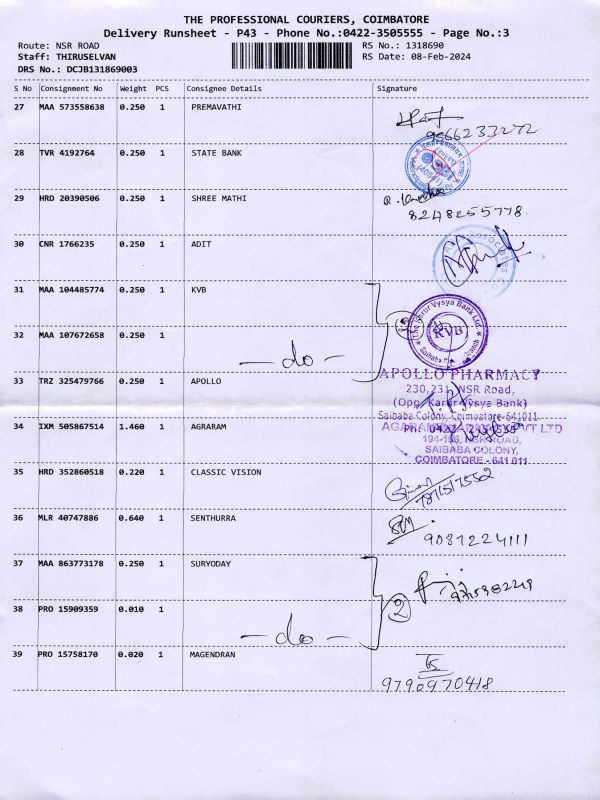 THE PROFESSIONAL COURIERS, COIMBATORE
Delivery Runsheet - P43 - Phone No.:0422-3505555 - Page No.:3
Route: NSR ROAD RS No.: 1318690
Staff: THIRUSELVAN RS Date: 08-Feb-2024
DRS No.: DCJB131869003
S No Consignment No Weight PCS Consignee Details Signature
27 MAA 573558638 0.250 1 PREMAVATHI
9566233272
28 TVR 4192764 0.250 1 STATE BANK
29 HRD 20390506 0.250 1 SHREE MATHI
8248255778.
30 CNR 1766235 0.250 1 ADIT
31 MAA 104485774 0.250 1 KVB
The Karur Vysya Bank Ltd
KVB
32 MAA 107672658 0.250 1
—do—
33 TRZ 325479766 0.250 1 APOLLO
APOLLO PHARMACY
230,231, NSR Road,
(Opp. Karur Vysya Bank)
Saibaba Colony, Coimbatore-641011
34 IXM 505867514 1.460 1 AGRARAM
PVT LTD
SAIBABA COLONY,
COIMBATORE - 641 011
35 HRD 352860518 0.220 1 CLASSIC VISION
36 MLR 40747886 0.640 1 SENTHURRA
9087224111
37 MAA 863773178 0.250 1 SURYODAY
38 PRO 15909359 0.010 1
2
—do—
39 PRO 15758170 0.020 1 MAGENDRAN
9790970418